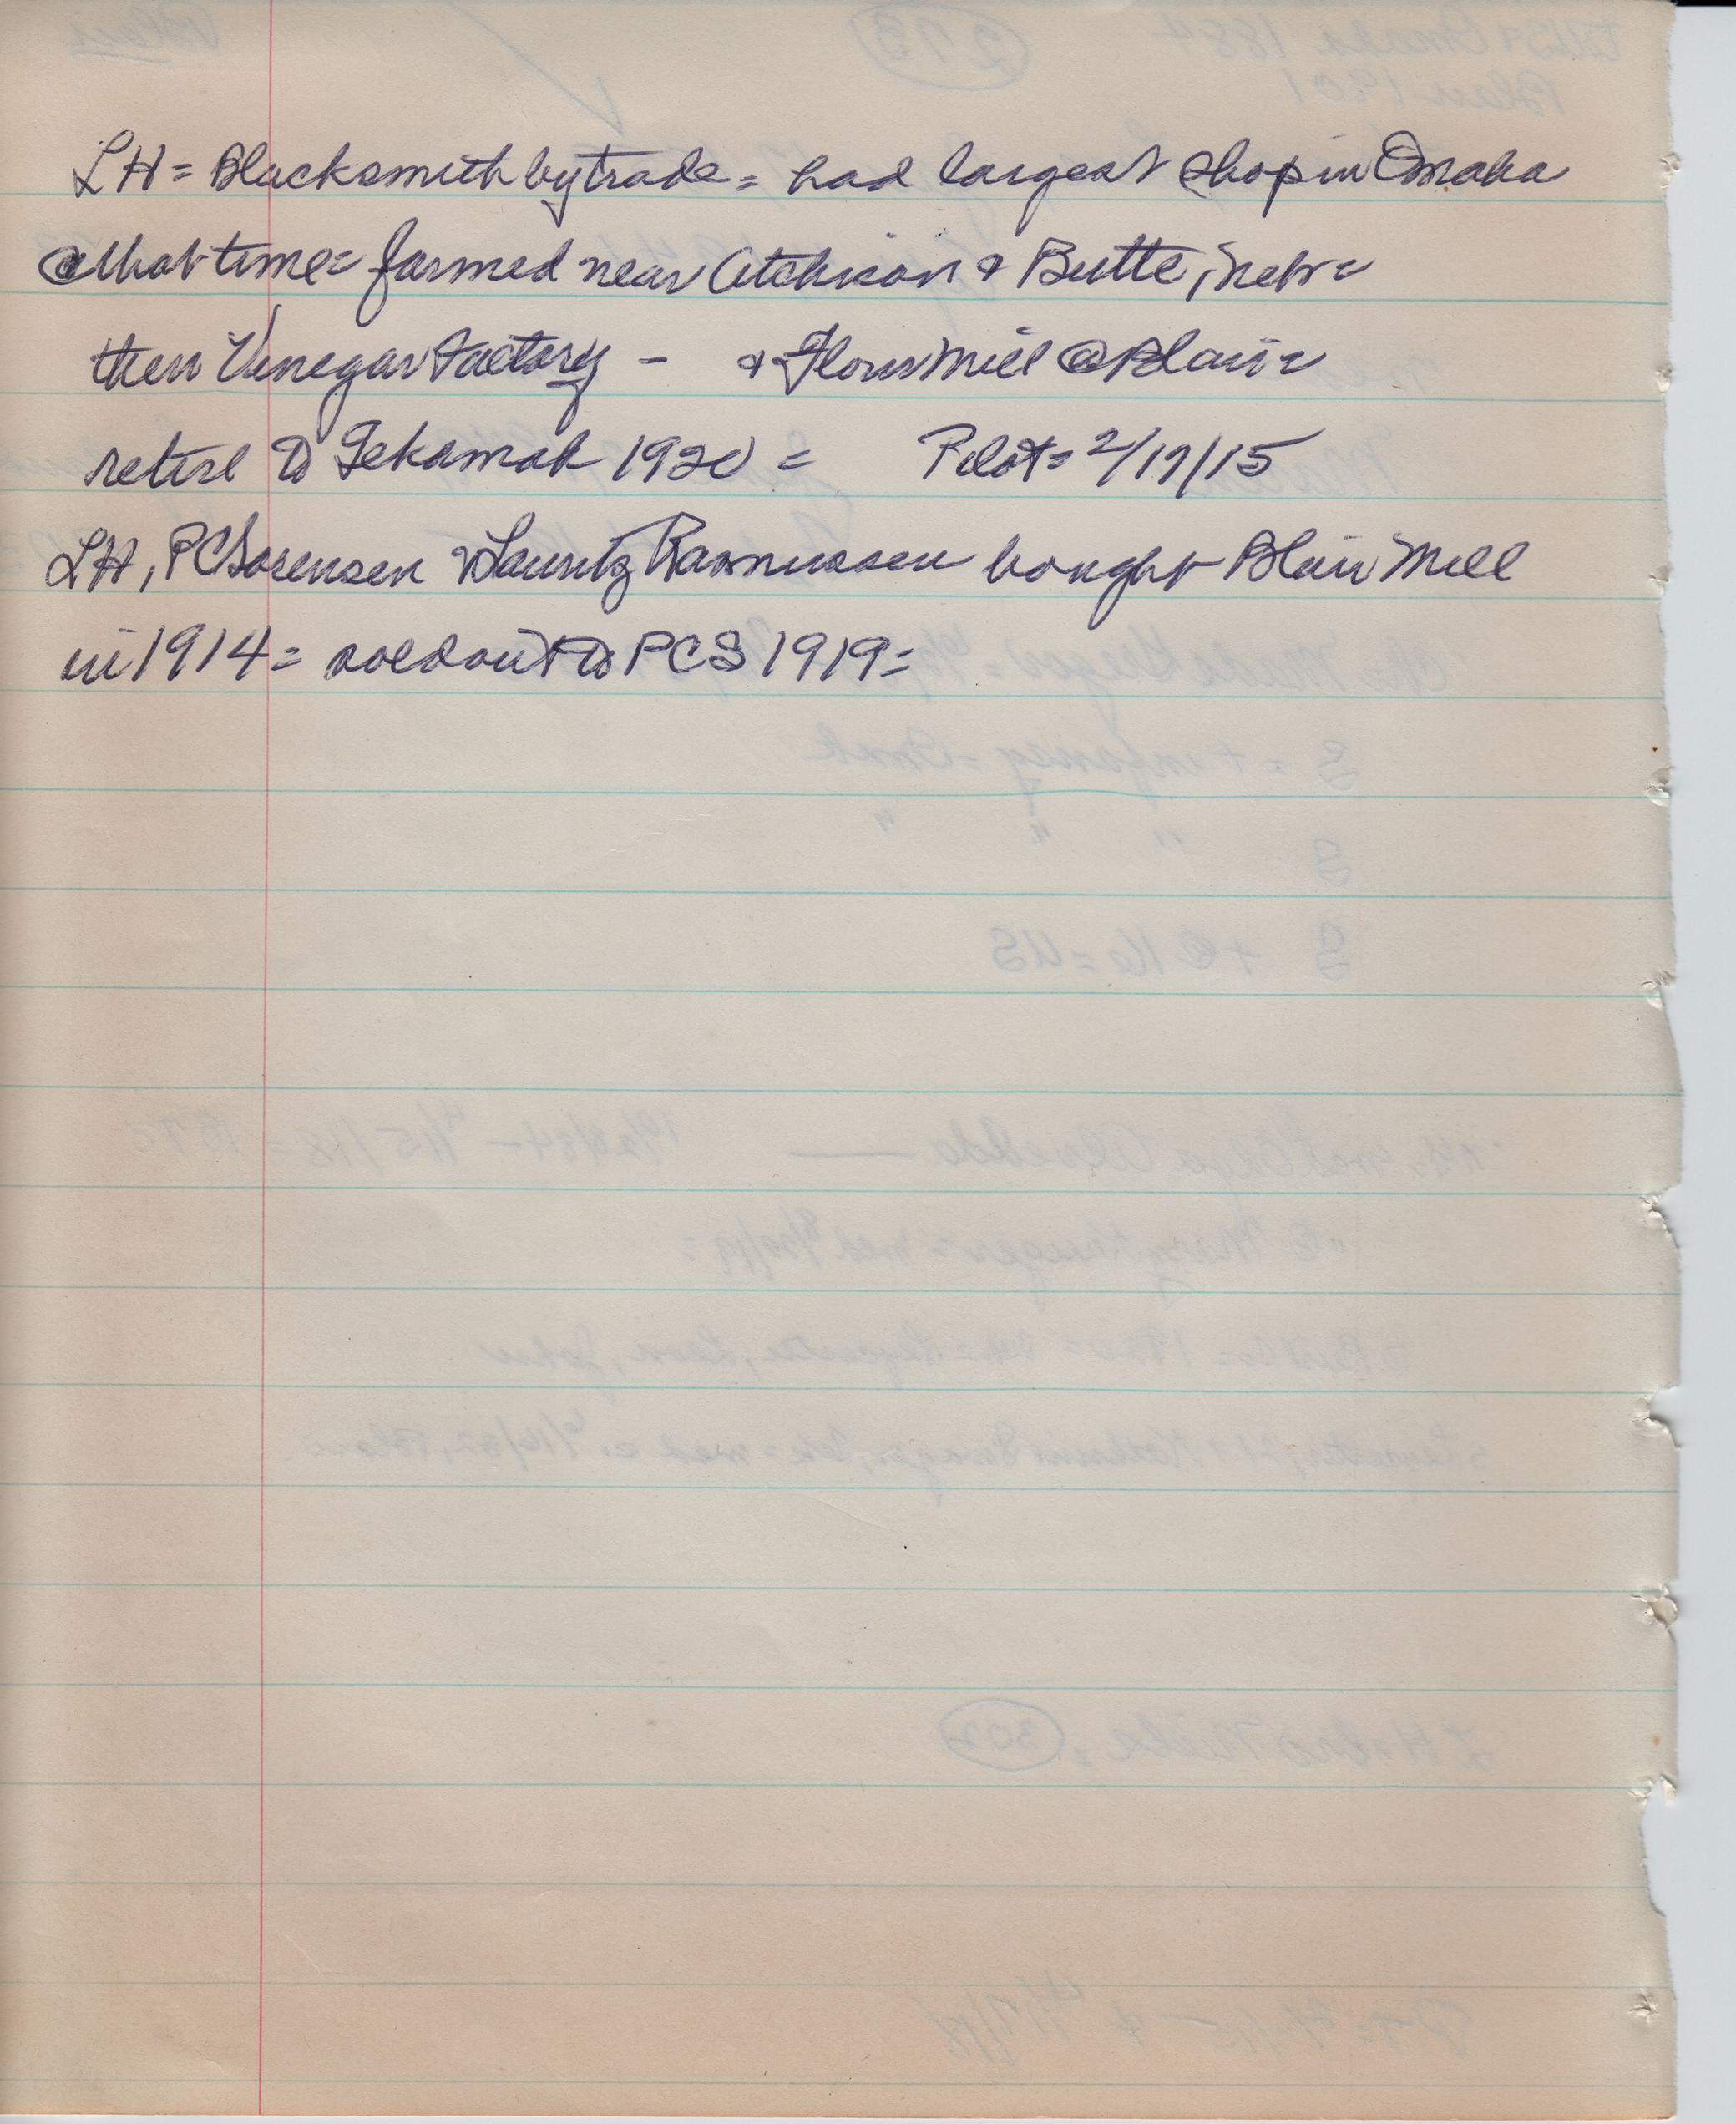 LH = Blacksmith by trade = had largest shop in Omaha
@ that time = farmed near Atchison & Butte, Nebr =
then Vinegar Factory - & Flour Mill @ Blair =
retire to Tekamah 1920 = Pilot = 2/17/15
LH, PC Sorensen & Lauritz Rasmussen bought Blair Mill
in 1914 = sold out to PCS 1919 =